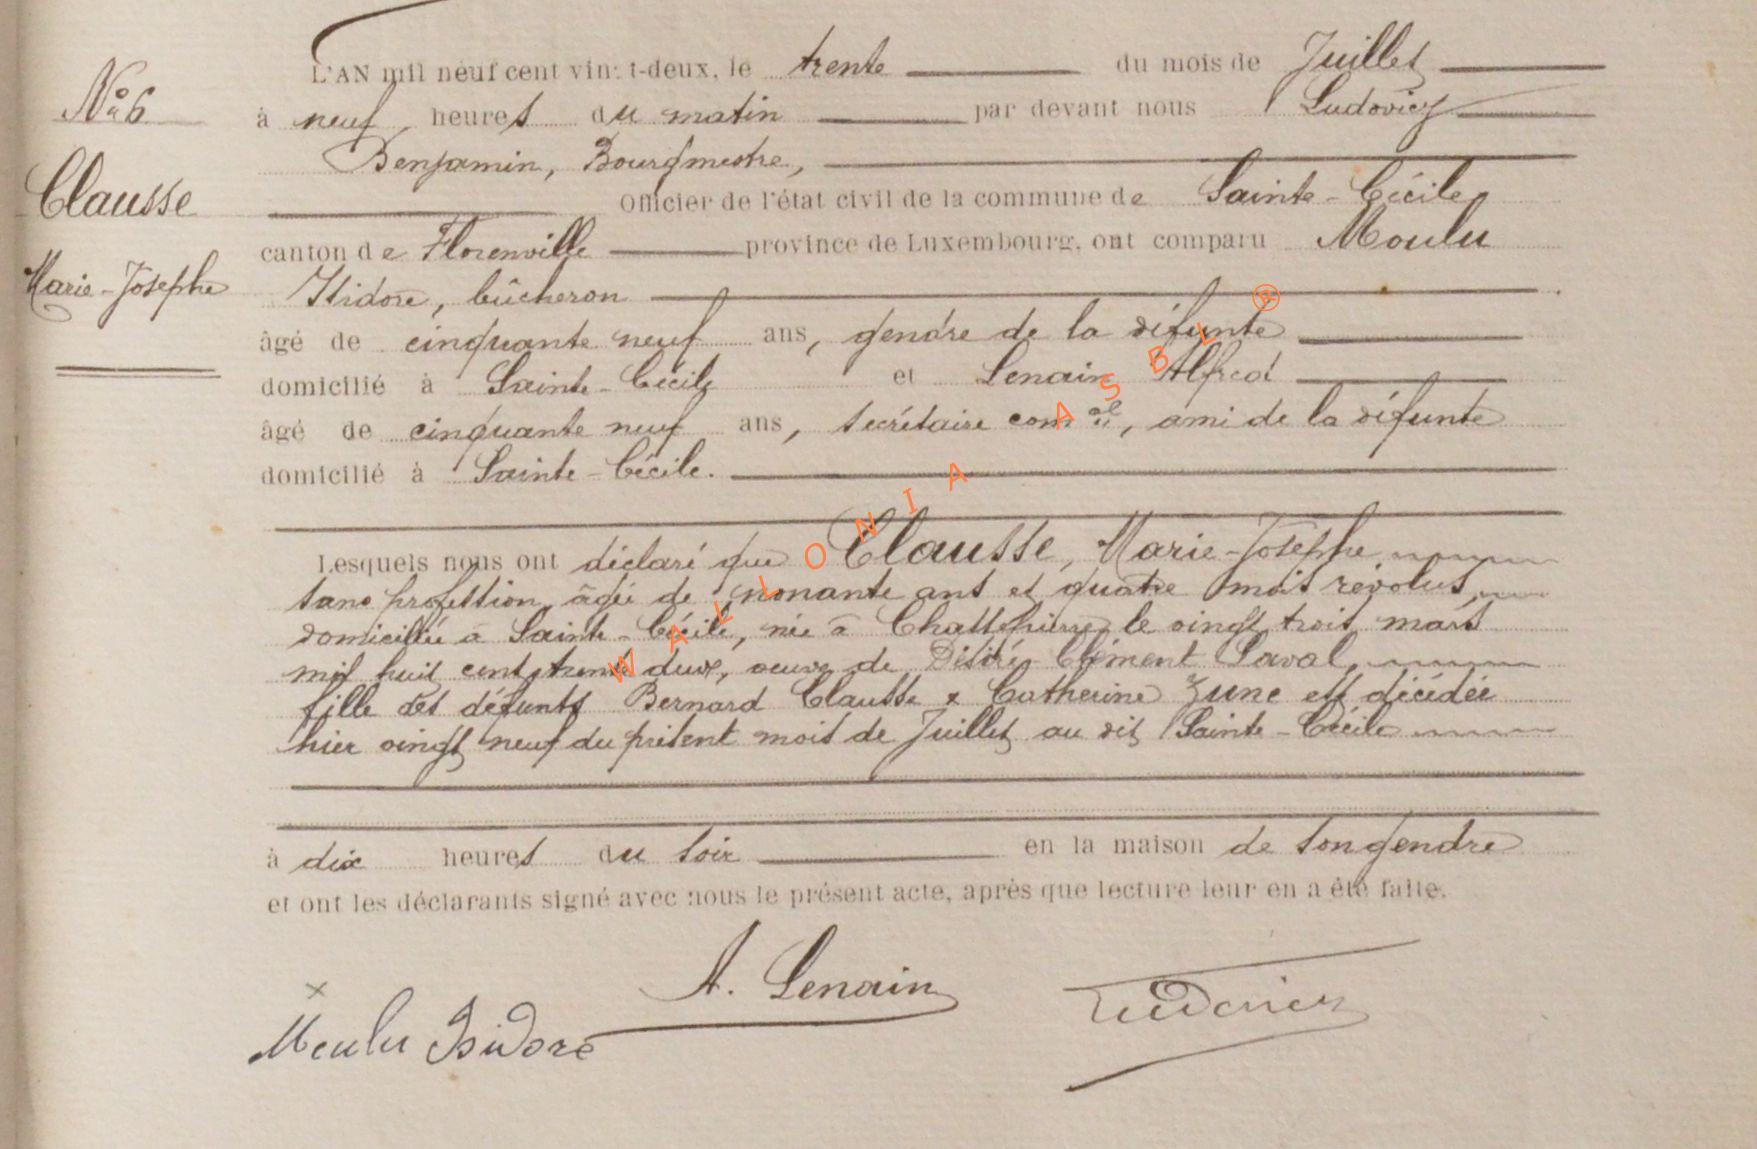 N° 6
Clausse
Marie-Josephe
L'AN mil neuf cent vingt-deux, le trente du mois de Juillet
à neuf heures du matin par devant nous Ludovicy
Benjamin, Bourgmestre,
Officier de l'état civil de la commune de Sainte-Cécile
canton de Florenville province de Luxembourg, ont comparu Moulu
Isidore, bûcheron
âgé de cinquante neuf ans, gendre de la défunte
domicilié à Sainte-Cécile et Lenain Alfred
âgé de cinquante neuf ans, secrétaire comal, ami de la défunte
domicilié à Sainte-Cécile.
Lesquels nous ont déclaré que Clausse, Marie-Josephe
sans profession, âgée de nonante ans et quatre mois révolus,
domiciliée à Sainte-Cécile, née à Chassepierre le vingt trois mars
mil huit cent trente deux, veuve de Désiré Clément Laval,
fille des défunts Bernard Clausse & Catherine Zune est décédée
hier vingt neuf du présent mois de Juillet au dit Sainte-Cécile
à dix heures du soir en la maison de son gendre
et ont les déclarants signé avec nous le présent acte, après que lecture leur en a été faite.
A. Lenain
Ludovicy
x
Moulu Isidore
WALLONIA ASBL ®